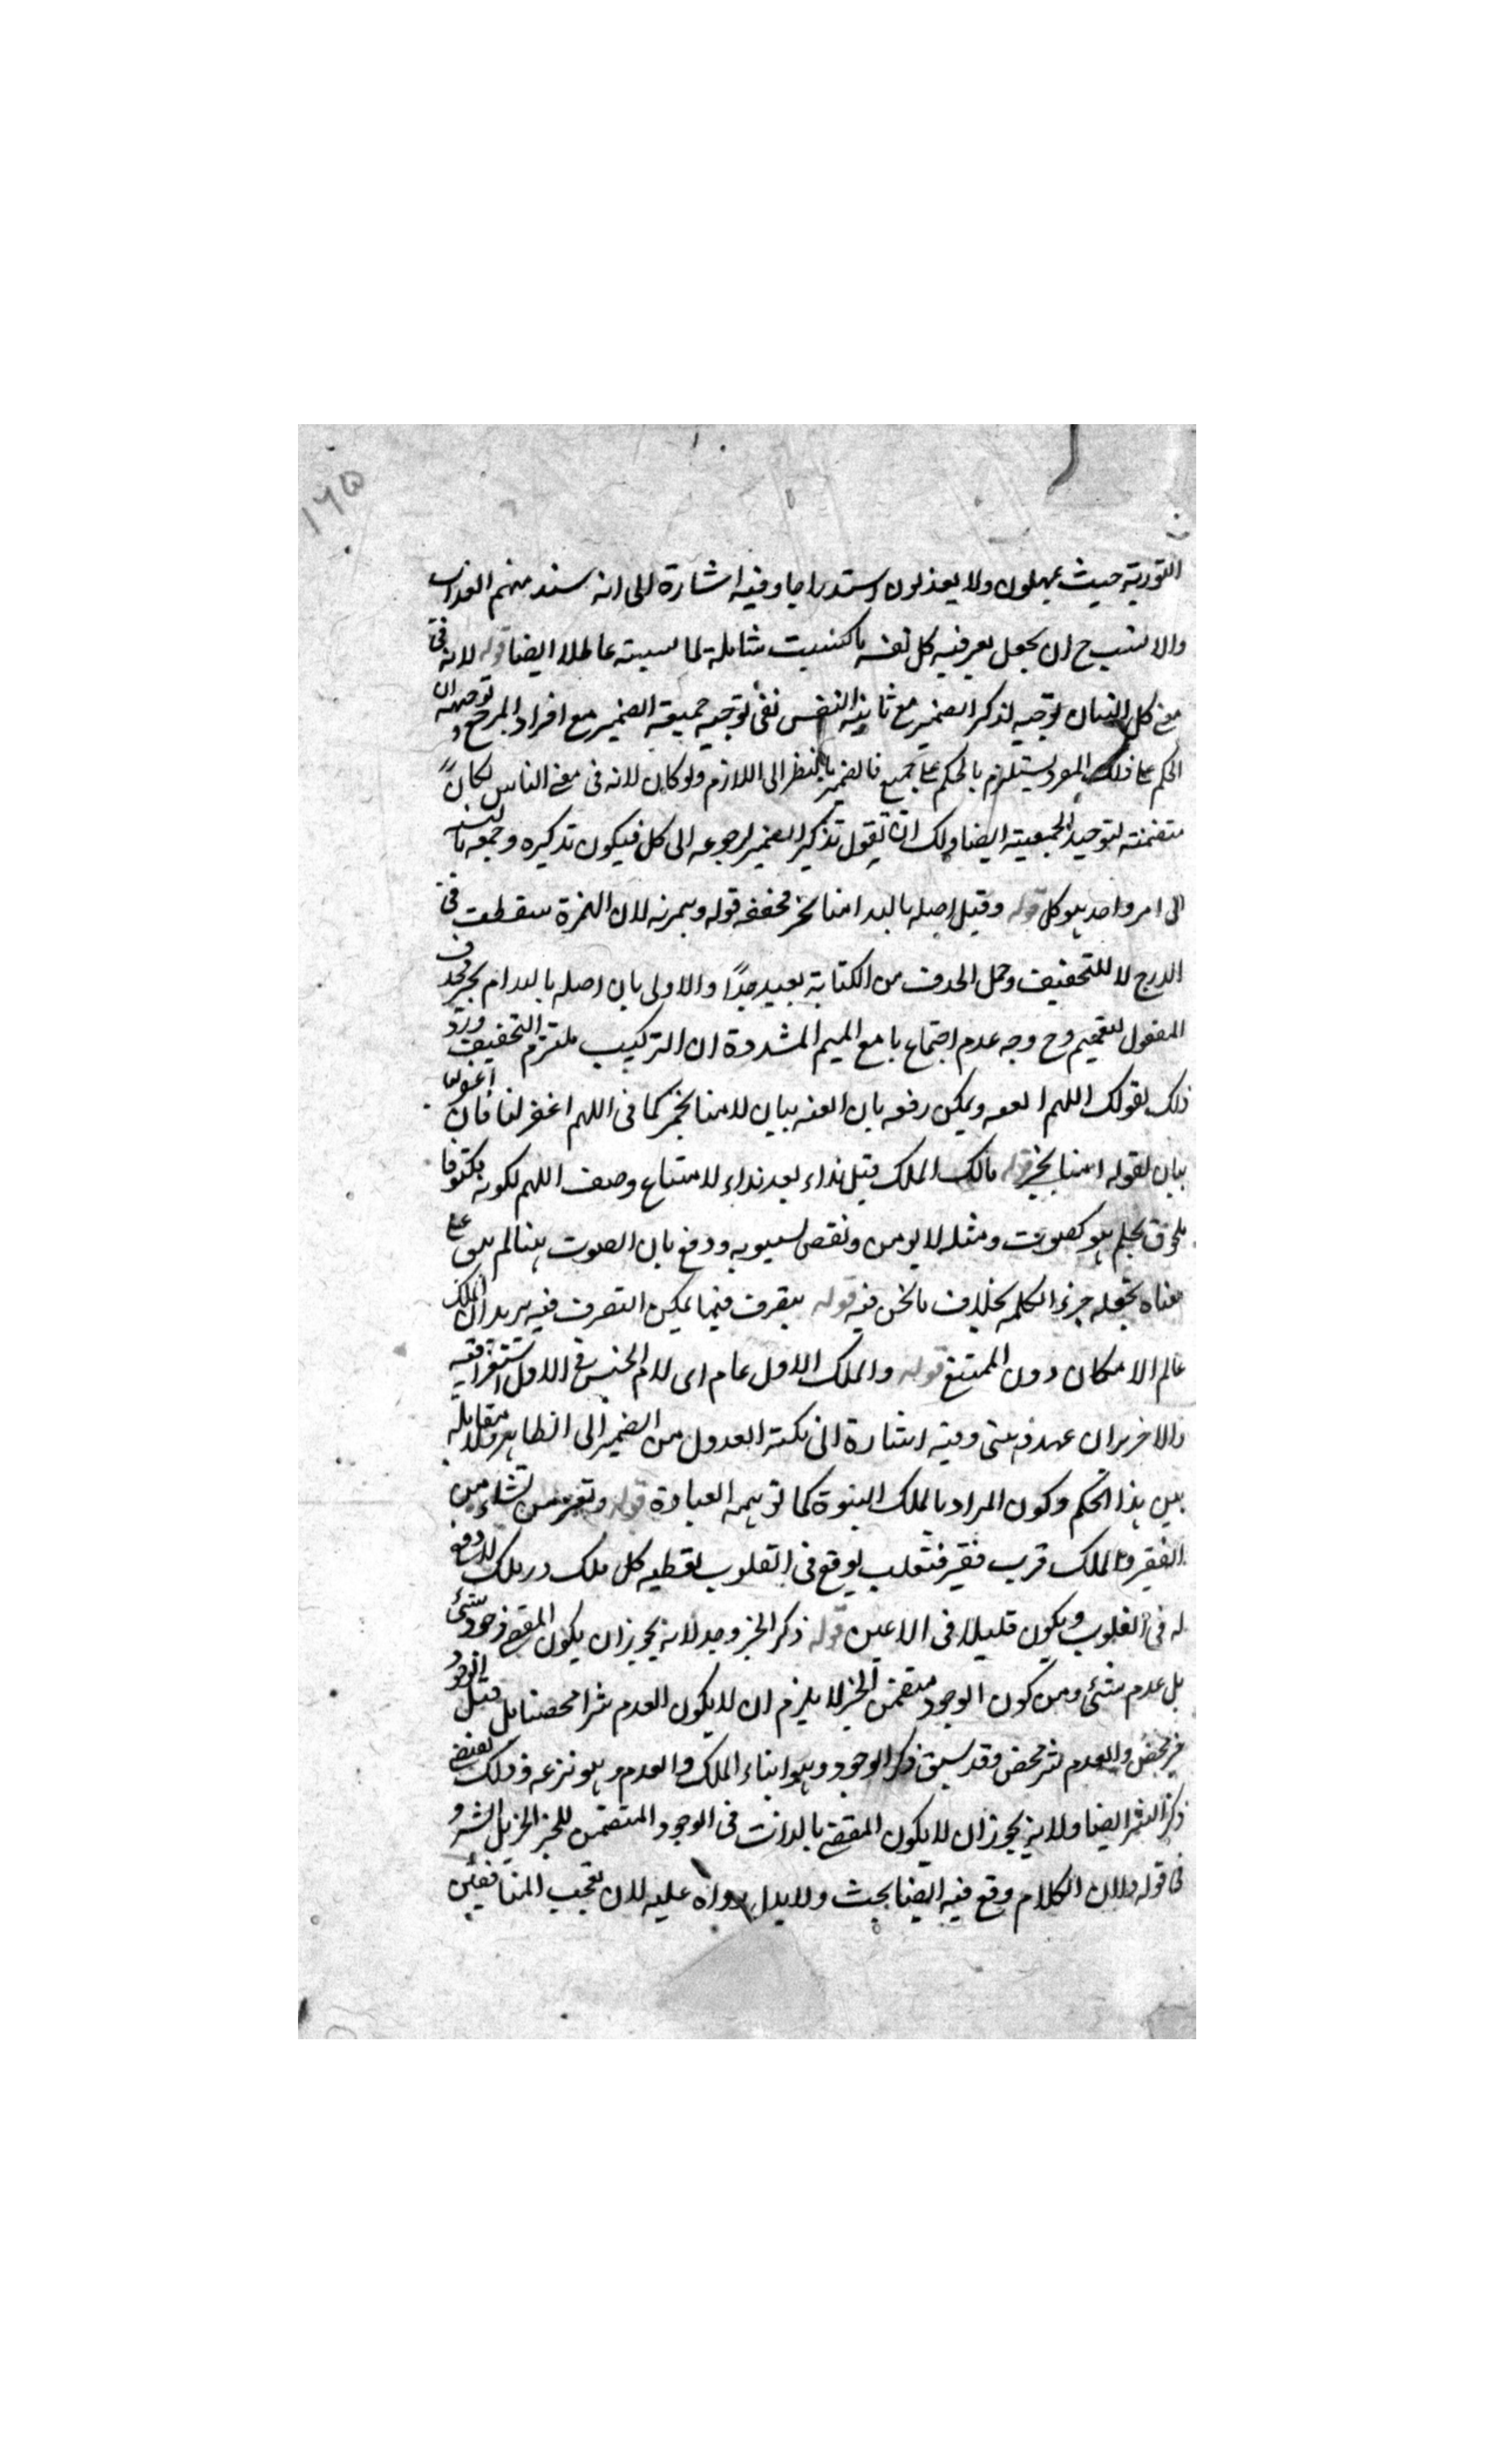 ١٦٥
التورية حيث يمهلون ولا يعذبون استدراجا وفيه اشارة الى انه سند منهم العذاب
والانسب ح ان يجعل يعرفيه كل نفس ما كسبت شاملة لما لسبته عاطلا ايضا قوله لانه في
معنى كل انسان توجيه لتذكر الضمير مع تانيث النفس نفى توجيه جمعية الضمير مع افراد المرجع و توجيهه ان
الحكم على ذلك المفرد يستلزم بالحكم على الجميع فالضمير بالنظر الى اللازم ولو كان لانه في معنى الناس لكان
متضمنة لتوحيد الجمعية ايضا ولك ان تقول تذكير الضمير لرجوعه الى كل فيكون تذكيره وجمعه بالنسبة
الى امر واحد هو كل قوله وقيل اصله يا الله امنا بخير مخفف قوله وهمزته لان الهمزة سقطت في
الدرج لا للتخفيف وحمل الحذف من الكتابة بعيد جدا والاولى بان اصله يا الله ام بخير فحذف
المفعول للتعميم وح وجه عدم اجتماع يا مع الميم المشددة ان التركيب ملتزم التخفيف ورد
ذلك بقولك اللهم العنه ويمكن رفعه بان العنه بيان لامنا بخير كما في اللهم اغفر لنا فان اغفر لنا
بيان لقوله امنا بخير قوله مالك الملك قيل نداء بعد نداء لامتناع وصف اللهم لكونه مكتوفا
بحرف بحلم هو كصوت ومثله لا يوصف ونقص لسيبويه ودفع بان الصوت هنا لم يبق على
معناه بجعله جزء الكلمة بخلاف ما نحن فيه قوله يتصرف فيما يمكن التصرف فيه يريد ان الملك
عالم الامكان دون الممتنع قوله والملك الاول عام اى لام الجنس في الاول استغراقية
والاخريان عهد ذهنى وفيه اشارة الى نكتة العدول من الضمير الى الظاهر ولا مقابلة
بين هذا الحكم وكون المراد بالملك النبوة كما توهمه العبارة قوله وتعز من تشاء من
الفقير والملك قرب فقير فتقلب يوقع في القلوب لقطيه كل ملك در ملك لا وقع
له في القلوب ويكون قليلا في الاعين قوله ذكر الخير وحده لانه يجوز ان يكون المقضى وجود شئ
بل عدم شئ ومن كون الوجود متضمن الخير لا يلزم ان لا يكون العدم شرا محضا بل قيل الوجود
خير محض والعدم شر محض وقد سبق ذكر الوجود وهو ايتاء الملك والعدم وهو نزعه وذلك بعينه
ذكر الشر ايضا ولانه يجوز ان لا يكون المقضى بالذات في الوجود المتضمن للخير الخير بل الشر و
في قوله ولان الكلام وقع فيه ايضا بحث ولا يدل رواه عليه لان تعجب المنافقين